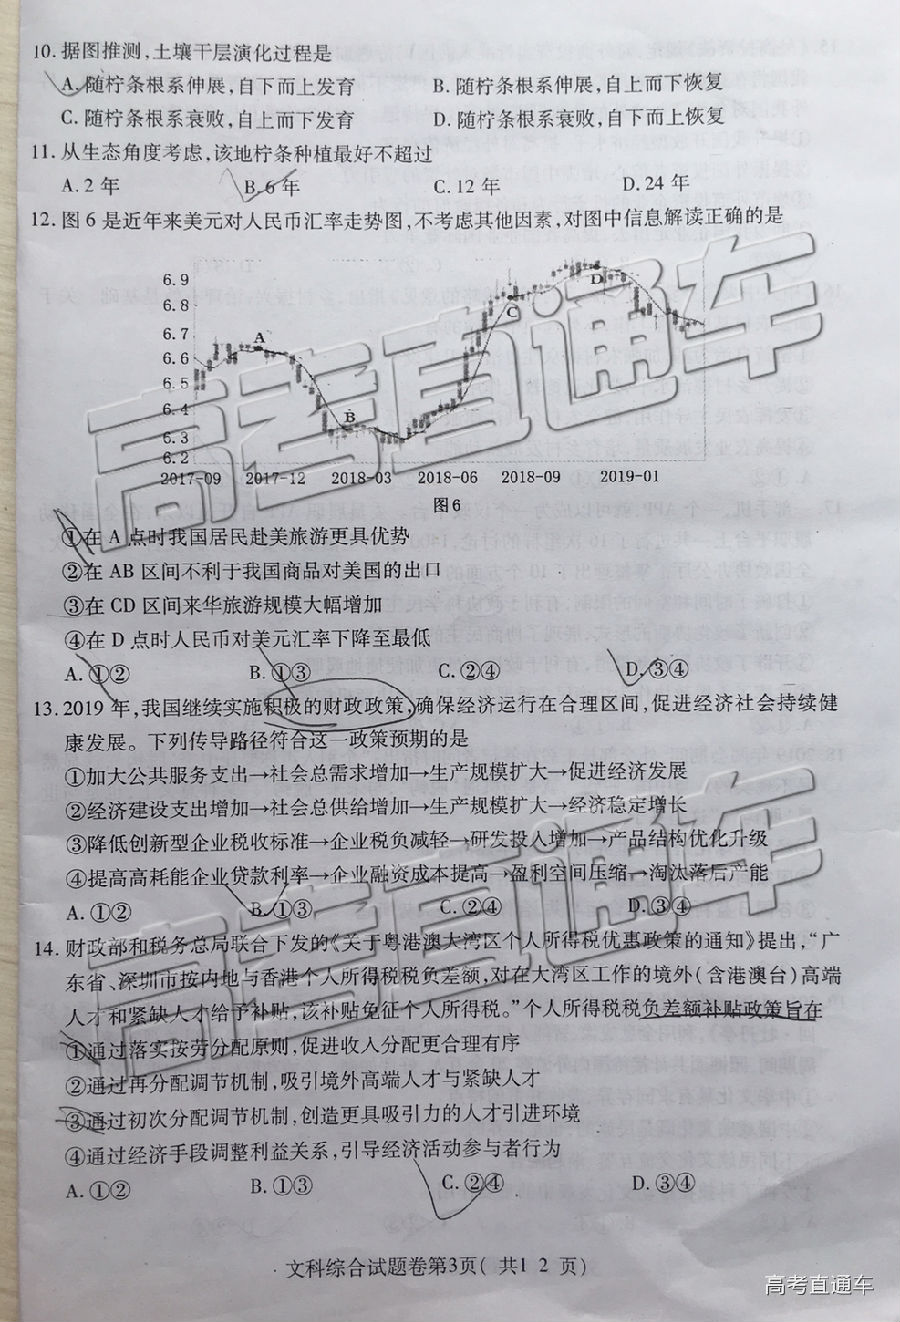 10. 据图推测,土壤干层演化过程是
A. 随柠条根系伸展,自下而上发育 B. 随柠条根系伸展,自上而下恢复
C. 随柠条根系衰败,自上而下发育 D. 随柠条根系衰败,自上而下恢复
11. 从生态角度考虑,该地柠条种植最好不超过
A. 2 年 B. 6 年 C. 12 年 D. 24 年
12. 图 6 是近年来美元对人民币汇率走势图,不考虑其他因素,对图中信息解读正确的是
6.9
6.8
6.7
6.6
6.5
6.4
6.3
6.2
A
B
C
D
2017-09 2017-12 2018-03 2018-06 2018-09 2019-01
图 6
①在 A 点时我国居民赴美旅游更具优势
②在 AB 区间不利于我国商品对美国的出口
③在 CD 区间来华旅游规模大幅增加
④在 D 点时人民币对美元汇率下降至最低
A. ①② B. ①③ C. ②④ D. ③④
13. 2019 年,我国继续实施积极的财政政策,确保经济运行在合理区间,促进经济社会持续健
康发展。下列传导路径符合这一政策预期的是
①加大公共服务支出→社会总需求增加→生产规模扩大→促进经济发展
②经济建设支出增加→社会总供给增加→生产规模扩大→经济稳定增长
③降低创新型企业税收标准→企业税负减轻→研发投入增加→产品结构优化升级
④提高高耗能企业贷款利率→企业融资成本提高→盈利空间压缩→淘汰落后产能
A. ①② B. ①③ C. ②④ D. ③④
14. 财政部和税务总局联合下发的《关于粤港澳大湾区个人所得税优惠政策的通知》提出,“广
东省、深圳市按内地与香港个人所得税税负差额,对在大湾区工作的境外(含港澳台)高端
人才和紧缺人才给予补贴,该补贴免征个人所得税。”个人所得税税负差额补贴政策旨在
①通过落实按劳分配原则,促进收入分配更合理有序
②通过再分配调节机制,吸引境外高端人才与紧缺人才
③通过初次分配调节机制,创造更具吸引力的人才引进环境
④通过经济手段调整利益关系,引导经济活动参与者行为
A. ①② B. ①③ C. ②④ D. ③④
文科综合试题卷第3页( 共1 2 页)
高考直通车
高考直通车
高考直通车